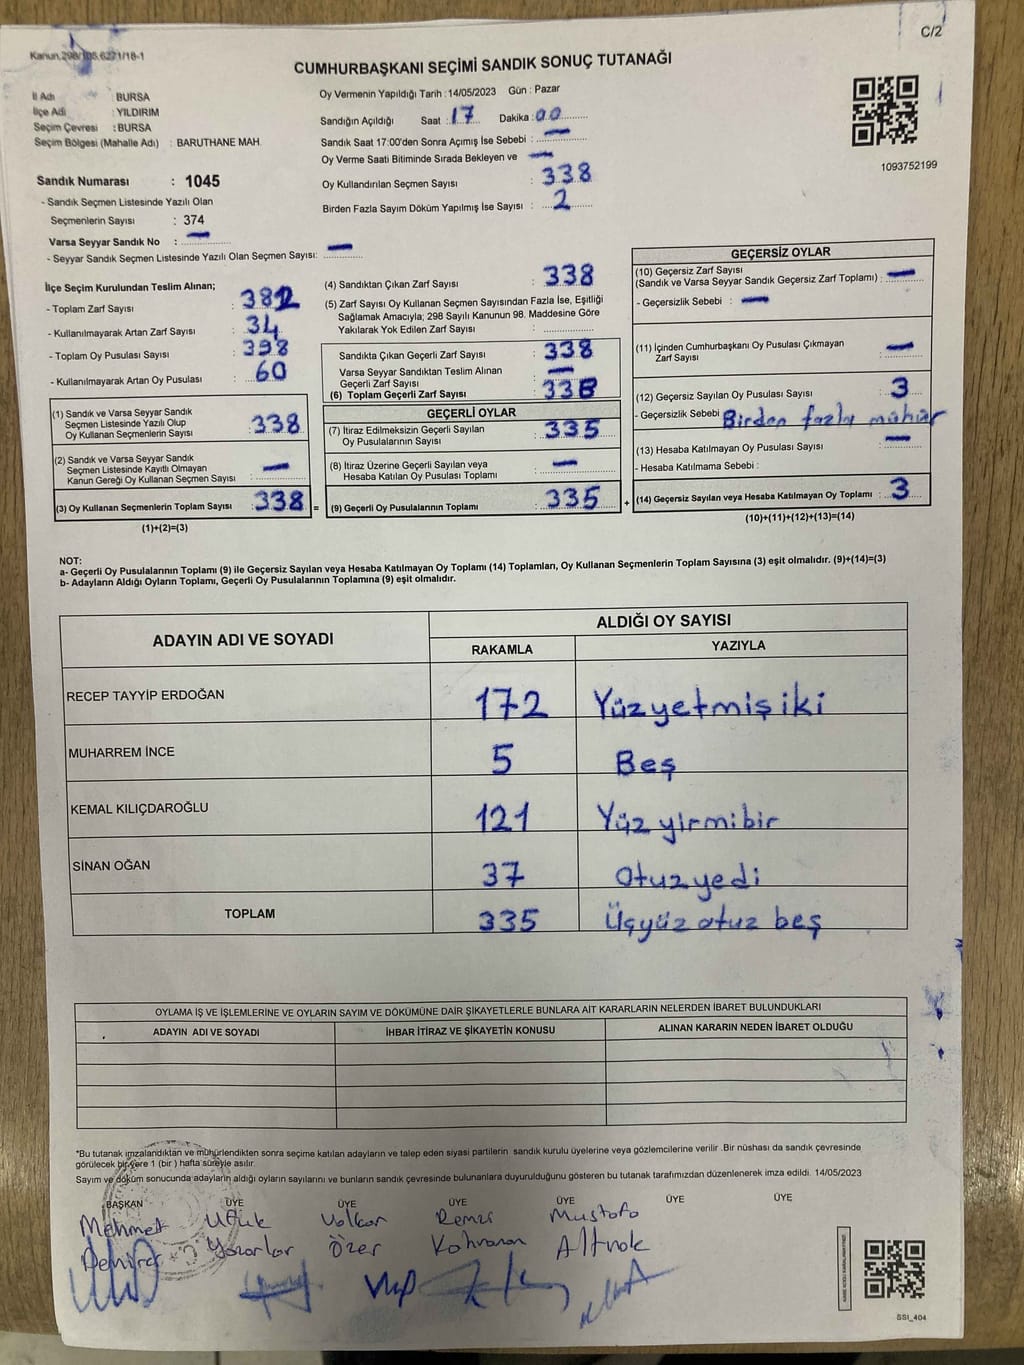 C/2
Kanun.298/105,6271/18-1
CUMHURBAŞKANI SEÇİMİ SANDIK SONUÇ TUTANAĞI
İl Adı : BURSA
İlçe Adı : YILDIRIM
Seçim Çevresi : BURSA
Seçim Bölgesi (Mahalle Adı) : BARUTHANE MAH.
Oy Vermenin Yapıldığı Tarih : 14/05/2023 Gün : Pazar
Sandığın Açıldığı Saat : 17 Dakika : 00
Sandık Saat 17:00'den Sonra Açımış İse Sebebi : —
Oy Verme Saati Bitiminde Sırada Bekleyen ve —
Oy Kullandırılan Seçmen Sayısı : 338
Birden Fazla Sayım Döküm Yapılmış İse Sayısı : 2
1093752199
Sandık Numarası : 1045
- Sandık Seçmen Listesinde Yazılı Olan
Seçmenlerin Sayısı : 374
Varsa Seyyar Sandık No : —
- Seyyar Sandık Seçmen Listesinde Yazılı Olan Seçmen Sayısı: —
İlçe Seçim Kurulundan Teslim Alınan;
- Toplam Zarf Sayısı : 382
- Kullanılmayarak Artan Zarf Sayısı : 34
- Toplam Oy Pusulası Sayısı : 398
- Kullanılmayarak Artan Oy Pusulası : 60
(1) Sandık ve Varsa Seyyar Sandık
Seçmen Listesinde Yazılı Olup
Oy Kullanan Seçmenlerin Sayısı : 338
(2) Sandık ve Varsa Seyyar Sandık
Seçmen Listesinde Kayıtlı Olmayan
Kanun Gereği Oy Kullanan Seçmen Sayısı : —
(3) Oy Kullanan Seçmenlerin Toplam Sayısı : 338 =
(1)+(2)=(3)
(4) Sandıktan Çıkan Zarf Sayısı : 338
(5) Zarf Sayısı Oy Kullanan Seçmen Sayısından Fazla İse, Eşitliği
Sağlamak Amacıyla; 298 Sayılı Kanunun 98. Maddesine Göre
Yakılarak Yok Edilen Zarf Sayısı :
Sandıkta Çıkan Geçerli Zarf Sayısı : 338
Varsa Seyyar Sandıktan Teslim Alınan
Geçerli Zarf Sayısı : —
(6) Toplam Geçerli Zarf Sayısı : 338
GEÇERLİ OYLAR
(7) İtiraz Edilmeksizin Geçerli Sayılan
Oy Pusulalarının Sayısı : 335
(8) İtiraz Üzerine Geçerli Sayılan veya
Hesaba Katılan Oy Pusulası Toplamı : —
(9) Geçerli Oy Pusulalarının Toplamı : 335 +
GEÇERSİZ OYLAR
(10) Geçersiz Zarf Sayısı
(Sandık ve Varsa Seyyar Sandık Geçersiz Zarf Toplamı) : —
- Geçersizlik Sebebi : —
(11) İçinden Cumhurbaşkanı Oy Pusulası Çıkmayan
Zarf Sayısı : —
(12) Geçersiz Sayılan Oy Pusulası Sayısı : 3
- Geçersizlik Sebebi : Birden fazla mühür
(13) Hesaba Katılmayan Oy Pusulası Sayısı : —
- Hesaba Katılmama Sebebi :
(14) Geçersiz Sayılan veya Hesaba Katılmayan Oy Toplamı : 3
(10)+(11)+(12)+(13)=(14)
NOT:
a- Geçerli Oy Pusulalarının Toplamı (9) ile Geçersiz Sayılan veya Hesaba Katılmayan Oy Toplamı (14) Toplamları, Oy Kullanan Seçmenlerin Toplam Sayısına (3) eşit olmalıdır. (9)+(14)=(3)
b- Adayların Aldığı Oyların Toplamı, Geçerli Oy Pusulalarının Toplamına (9) eşit olmalıdır.
ADAYIN ADI VE SOYADI ALDIĞI OY SAYISI
RAKAMLA YAZIYLA
RECEP TAYYİP ERDOĞAN 172 Yüzyetmiş iki
MUHARREM İNCE 5 Beş
KEMAL KILIÇDAROĞLU 121 Yüz yirmibir
SİNAN OĞAN 37 Otuzyedi
TOPLAM 335 Üçyüz otuz beş
OYLAMA İŞ VE İŞLEMLERİNE VE OYLARIN SAYIM VE DÖKÜMÜNE DAİR ŞİKAYETLERLE BUNLARA AİT KARARLARIN NELERDEN İBARET BULUNDUKLARI
ADAYIN ADI VE SOYADI İHBAR İTİRAZ VE ŞİKAYETİN KONUSU ALINAN KARARIN NEDEN İBARET OLDUĞU
*Bu tutanak imzalandıktan ve mühürlendikten sonra seçime katılan adayların ve talep eden siyasi partilerin sandık kurulu üyelerine veya gözlemcilerine verilir .Bir nüshası da sandık çevresinde
görülecek bir yere 1 (bir ) hafta süreyle asılır.
Sayım ve döküm sonucunda adayların aldığı oyların sayılarını ve bunların sandık çevresinde bulunanlara duyurulduğunu gösteren bu tutanak tarafımızdan düzenlenerek imza edildi. 14/05/2023
BAŞKAN ÜYE ÜYE ÜYE ÜYE ÜYE ÜYE
Mehmet Ufuk Volkan Remzi Mustafa
Yazarlar Özer Kahraman Altınok
SSI_404